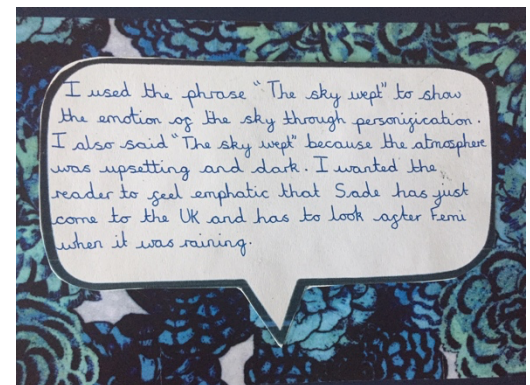 I used the phrase "The sky wept" to show
the emotion of the sky through personification.
I also said "The sky wept" because the atmosphere
was upsetting and dark. I wanted the
reader to feel emphatic that Sade has just
come to the UK and has to look after Femi
when it was raining.